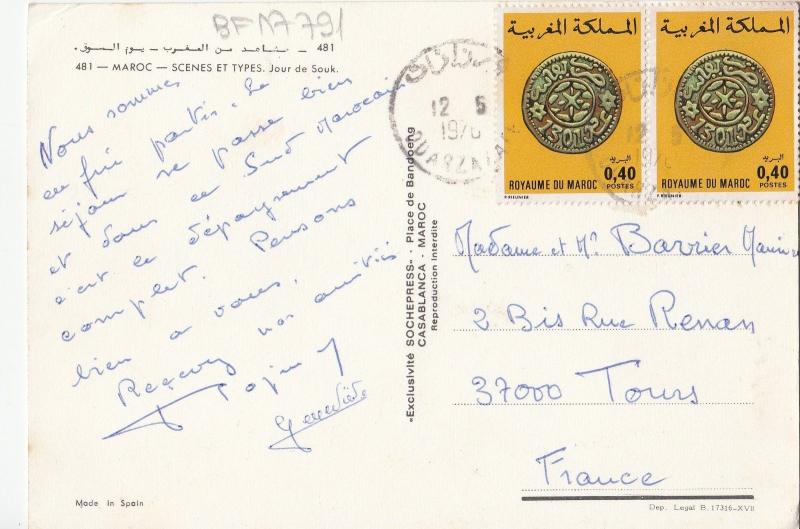 BFM7791
481 – مشاهد من المغرب – يوم السوق.
481 — MAROC — SCENES ET TYPES. Jour de Souk.
Nous sommes
en fin partis. Le
séjour se passe bien
et dans ce Sud Marocain
c'est le dépaysement
complet. Pensons
bien à vous,
Recevez nos amitiés
Geneviève
«Exclusivité SOCHEPRESS» - Place de Bandoeng
CASABLANCA - MAROC
Reproduction Interdite
المملكة المغربية
البريد
0,40
ROYAUME DU MAROC POSTES
P. RIEUNIER
المملكة المغربية
البريد
0,40
ROYAUME DU MAROC POSTES
P. RIEUNIER
12 5
197
OUARZAZA
Madame et Mr Barrier
2 Bis Rue Renan
37000 Tours
France
Made in Spain
Dep. Legal B. 17316-XVII